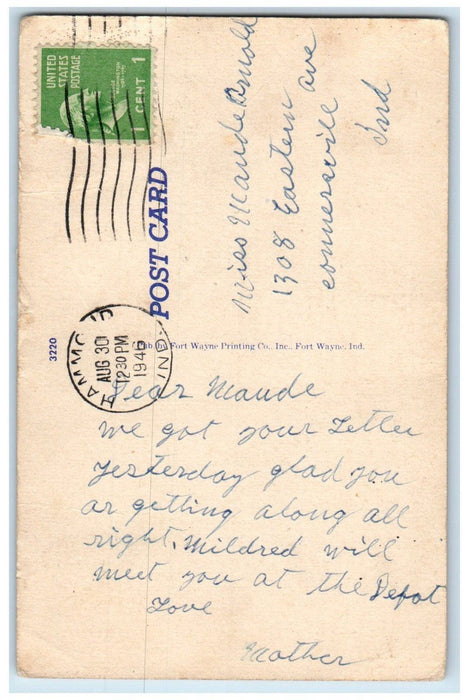 UNITED
STATES
POSTAGE
1 CENT 1
POST CARD
Miss Maude Arnold
1308 Eastern ave
connersville
Ind
3220
Pub by Fort Wayne Printing Co., Inc., Fort Wayne, Ind.
HAMMOND
IND.
AUG 30
12 30 PM
1946
Dear Maude
We got your Letter
yesterday glad you
ar getting along all
right. Mildred will
meet you at the Depot
Love
Mother